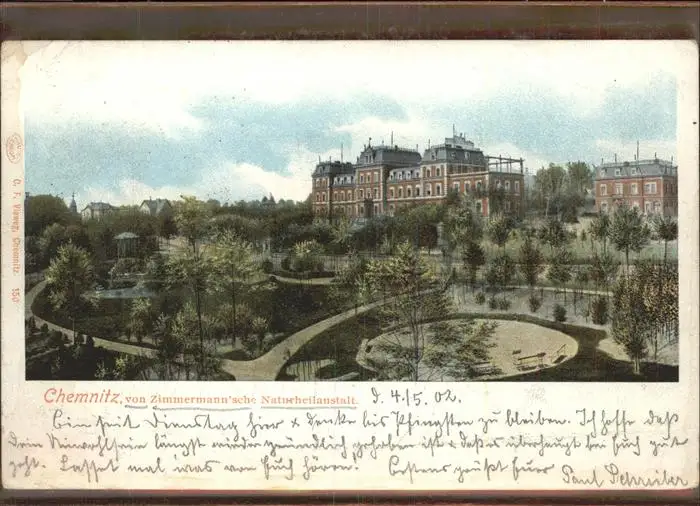 C. F. Vieweg, Chemnitz. 150
Chemnitz, von Zimmermann'sche Naturheilanstalt. d. 4./5. 02.
Bin seit Dienstag hier & denke bis Pfingsten zu bleiben. Ich hoffe daß
dein Unwohlsein längst wieder gründlich gehoben ist & daß es überhaupt bei Euch gut
geht. Lasset mal was von Euch hören. Bestens grüßt Euer Paul Schreiber